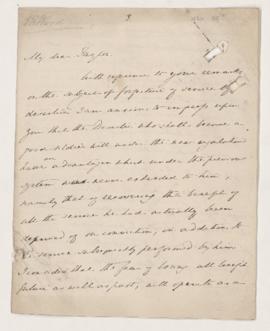 3
My dear Taylor
With reference to your remarks
on the subject of forfeiture of service by
desertion I am anxious to impress upon
you that the Deserter who shall become a
good soldier will under the new regulations
have an advantage which under the previous
system never extended to him,
namely that of recovering the benefit of
all the service he had actually been
deprived of on conviction, in addition to
the service subsequently performed by him
I consider that the fear of losing all benefit
future as well as past, will operate as a